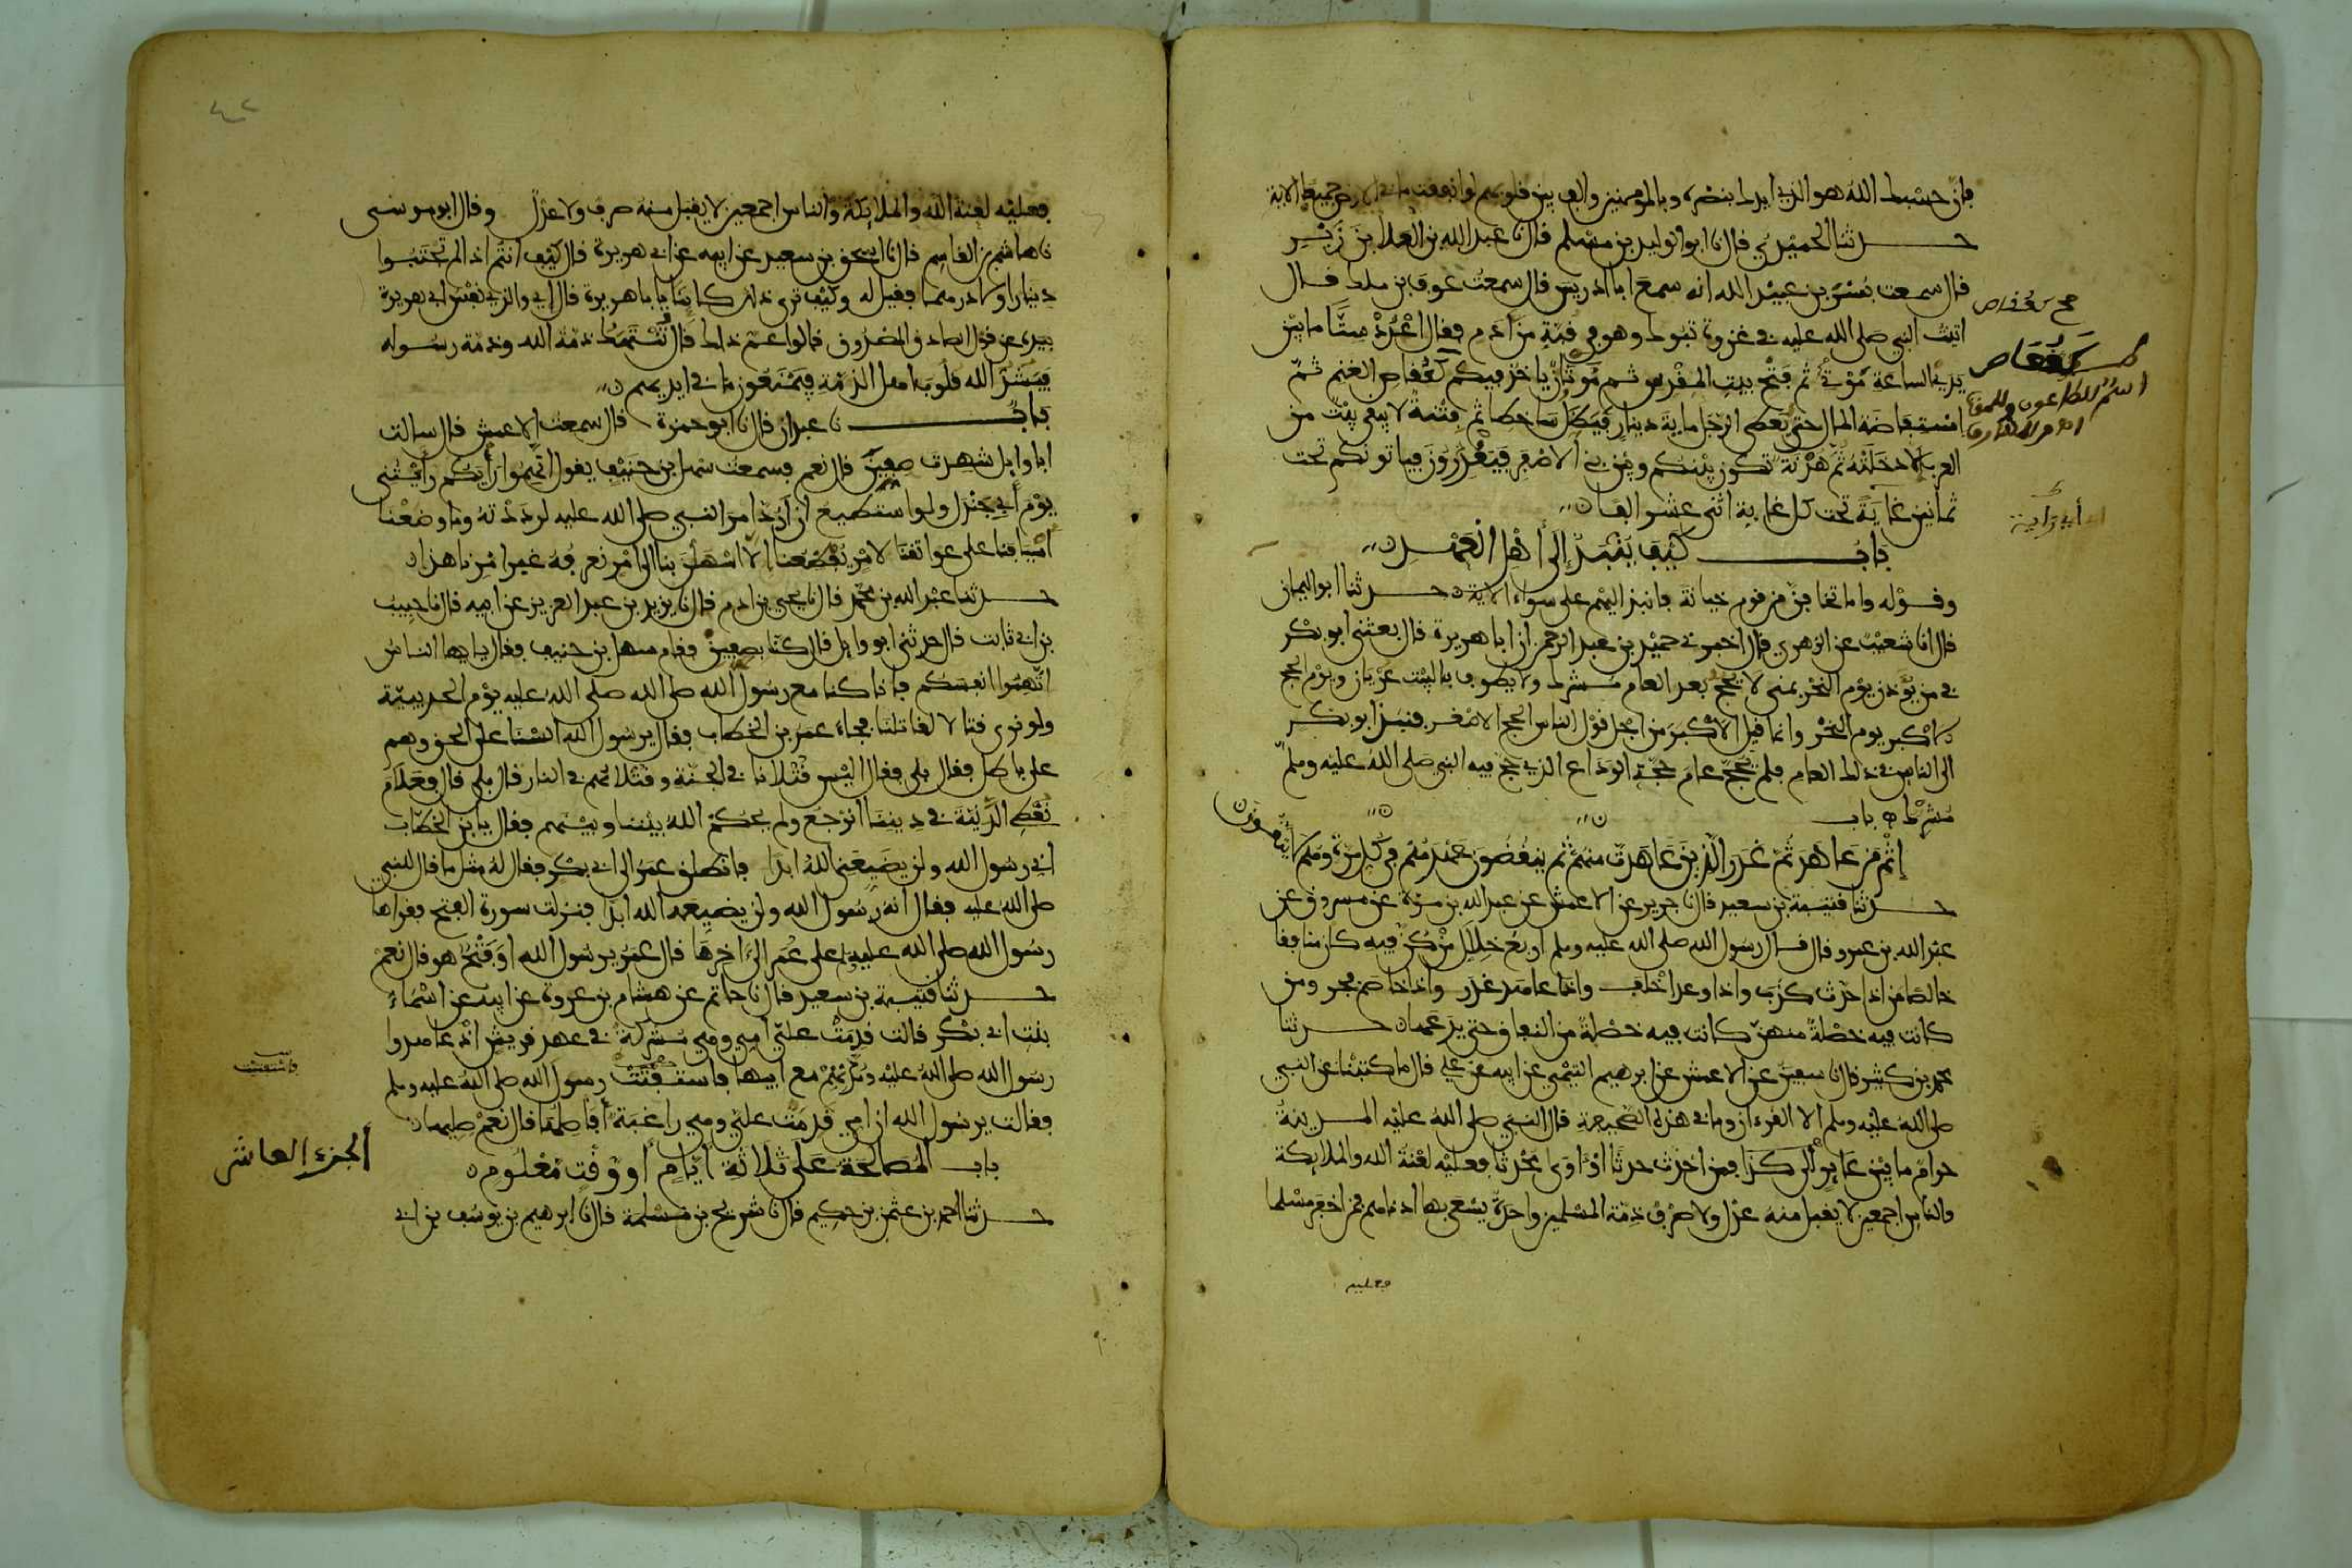 فإن حسبك الله هو الذي أيدك بنصره وبالمؤمنين وألف بين قلوبهم لو أنفقت ما في الأرض جميعا الآية
حدثنا الحميدي قال نا أبو الوليد بن مسلم قال نا عبد الله بن العلاء بن زبر
قال سمعت بسر بن عبيد الله أنه سمع أبا إدريس قال سمعت عوف بن ملك قال
أتيت النبي صلى الله عليه في غزوة تبوك وهو في قبة من أدم فقال اعدد ستا ما بين
يدي الساعة موتي ثم فتح بيت المقدس ثم موتان يأخذ فيكم كقعاص الغنم ثم
استفاضة المال حتى يعطى الرجل ماية دينار فيظل ساخطا ثم فتنة لا يبقى بيت من
العرب إلا دخلته ثم هدنة تكون بينكم وبين بني الأصفر فيغدرون فيأتونكم تحت
ثمانين غاية تحت كل غاية اثنى عشر ألفا
باب كيف ينبذ إلى أهل العهد
وقوله وإما تخافن من قوم خيانة فانبذ إليهم على سواء الآية حدثنا أبو اليمان
قال انا شعيب عن الزهري قال أخبرني حميد بن عبد الرحمن أن أبا هريرة قال بعثني أبو بكر
في من يؤذن يوم النحر بمنى لا يحج بعد العام مشرك ولا يطوف بالبيت عريان ويوم الحج
الأكبر يوم النحر وإنما قيل الأكبر من أجل قول الناس الحج الأصغر فنبذ أبو بكر
إلى الناس في ذلك العام فلم يحج عام حجة الوداع الذي حج فيه النبي صلى الله عليه وسلم
مشرك باب
إثم من عاهد ثم غدر الذين عاهدت منهم ثم ينقضون عهدهم في كل مرة وهم لا يتقون
حدثنا قتيبة بن سعيد قال نا جرير عن الأعمش عن عبد الله بن مرة عن مسروق عن
عبد الله بن عمرو قال قال رسول الله صلى الله عليه وسلم أربع خلال من كن فيه كان منافقا
خالصا من إذا حدث كذب وإذا وعد أخلف وإذا عاهد غدر وإذا خاصم فجر ومن
كانت فيه خصلة منهن كانت فيه خصلة من النفاق حتى يدعها حدثنا
محمد بن كثير قال نا سفين عن الأعمش عن إبرهيم التيمي عن أبيه عن علي قال ما كتبنا عن النبي
صلى الله عليه وسلم إلا القرءان وما في هذه الصحيفة قال النبي صلى الله عليه المدينة
حرام ما بين عاير إلى كذا فمن أحدث حدثا أو آوى محدثا فعليه لعنة الله والملايكة
والناس أجمعين لا يقبل منه عدل ولا صرف وذمة المسلمين واحدة يسعى بها أدناهم فمن أخفر مسلما
فعليه
كعقاص
كقعاص
فعليه لعنة الله والملايكة والناس أجمعين لا يقبل منه صرف ولا عدل وقال أبو موسى
نا هاشم بن القاسم قال نا إسحق بن سعيد عن أبيه عن أبي هريرة قال كيف أنتم إذا لم تجتبوا
دينارا ولا درهما فقيل له وكيف ترى ذلك كاينا يا با هريرة قال إي والذي نفس أبي هريرة
بيده عن قول الصادق المصدوق قالوا عم ذاك قال تنتهك ذمة الله وذمة رسوله
فيشد الله قلوب أهل الذمة فيمنعون ما في أيديهم
باب نا عبدان قال نا أبو حمزة قال سمعت الأعمش قال سالت
أبا وايل شهدت صفين قال نعم فسمعت سهل بن حنيف يقول اتهموا رأيكم رأيتني
يوم أبي جندل ولو أستطيع أن أرد أمر النبي صلى الله عليه لرددته وما وضعنا
أسيافنا على عواتقنا لأمر يفظعنا إلا أسهلن بنا إلى أمر نعرفه غير أمرنا هذا
حدثنا عبد الله بن محمد قال نا يحيى بن آدم قال نا يزيد بن عبد العزيز عن أبيه قال نا حبيب
بن أبي ثابت قال حدثني أبو وايل قال كنا بصفين فقام سهل بن حنيف فقال يا يها الناس
اتهموا أنفسكم فإنا كنا مع رسول الله صلى الله عليه يوم الحديبية
ولو نرى قتالا لقاتلنا فجاء عمر بن الخطاب فقال يرسول الله ألسنا على الحق وهم
على باطل فقال بلى فقال أليس قتلانا في الجنة وقتلاهم في النار قال بلى قال فعلام
نعطي الدنية في ديننا أنرجع ولم يحكم الله بيننا وبينهم فقال يا بن الخطاب
إني رسول الله ولن يضيعني الله أبدا فانطلق عمر إلى أبي بكر فقال له مثل ما قال للنبي
صلى الله عليه فقال إنه رسول الله ولن يضيعه الله أبدا فنزلت سورة الفتح فقرأها
رسول الله صلى الله عليه على عمر إلى آخرها قال عمر يرسول الله أوفتح هو قال نعم
حدثنا قتيبة بن سعيد قال نا حاتم عن هشام بن عروة عن أبيه عن أسماء
بنت أبي بكر قالت قدمت علي أمي وهي مشركة في عهد قريش إذ عاهدوا
رسول الله صلى الله عليه ومدتهم مع أبيها فاستفتت رسول الله صلى الله عليه وسلم
فقالت يرسول الله إن أمي قدمت علي وهي راغبة أفأصلها قال نعم صليها
باب المصالحة على ثلاثة أيام أو وقت معلوم
حدثنا أحمد بن عثمن بن حكيم قال نا شريح بن مسلمة قال نا إبرهيم بن يوسف بن أبي
الجزء العاشر